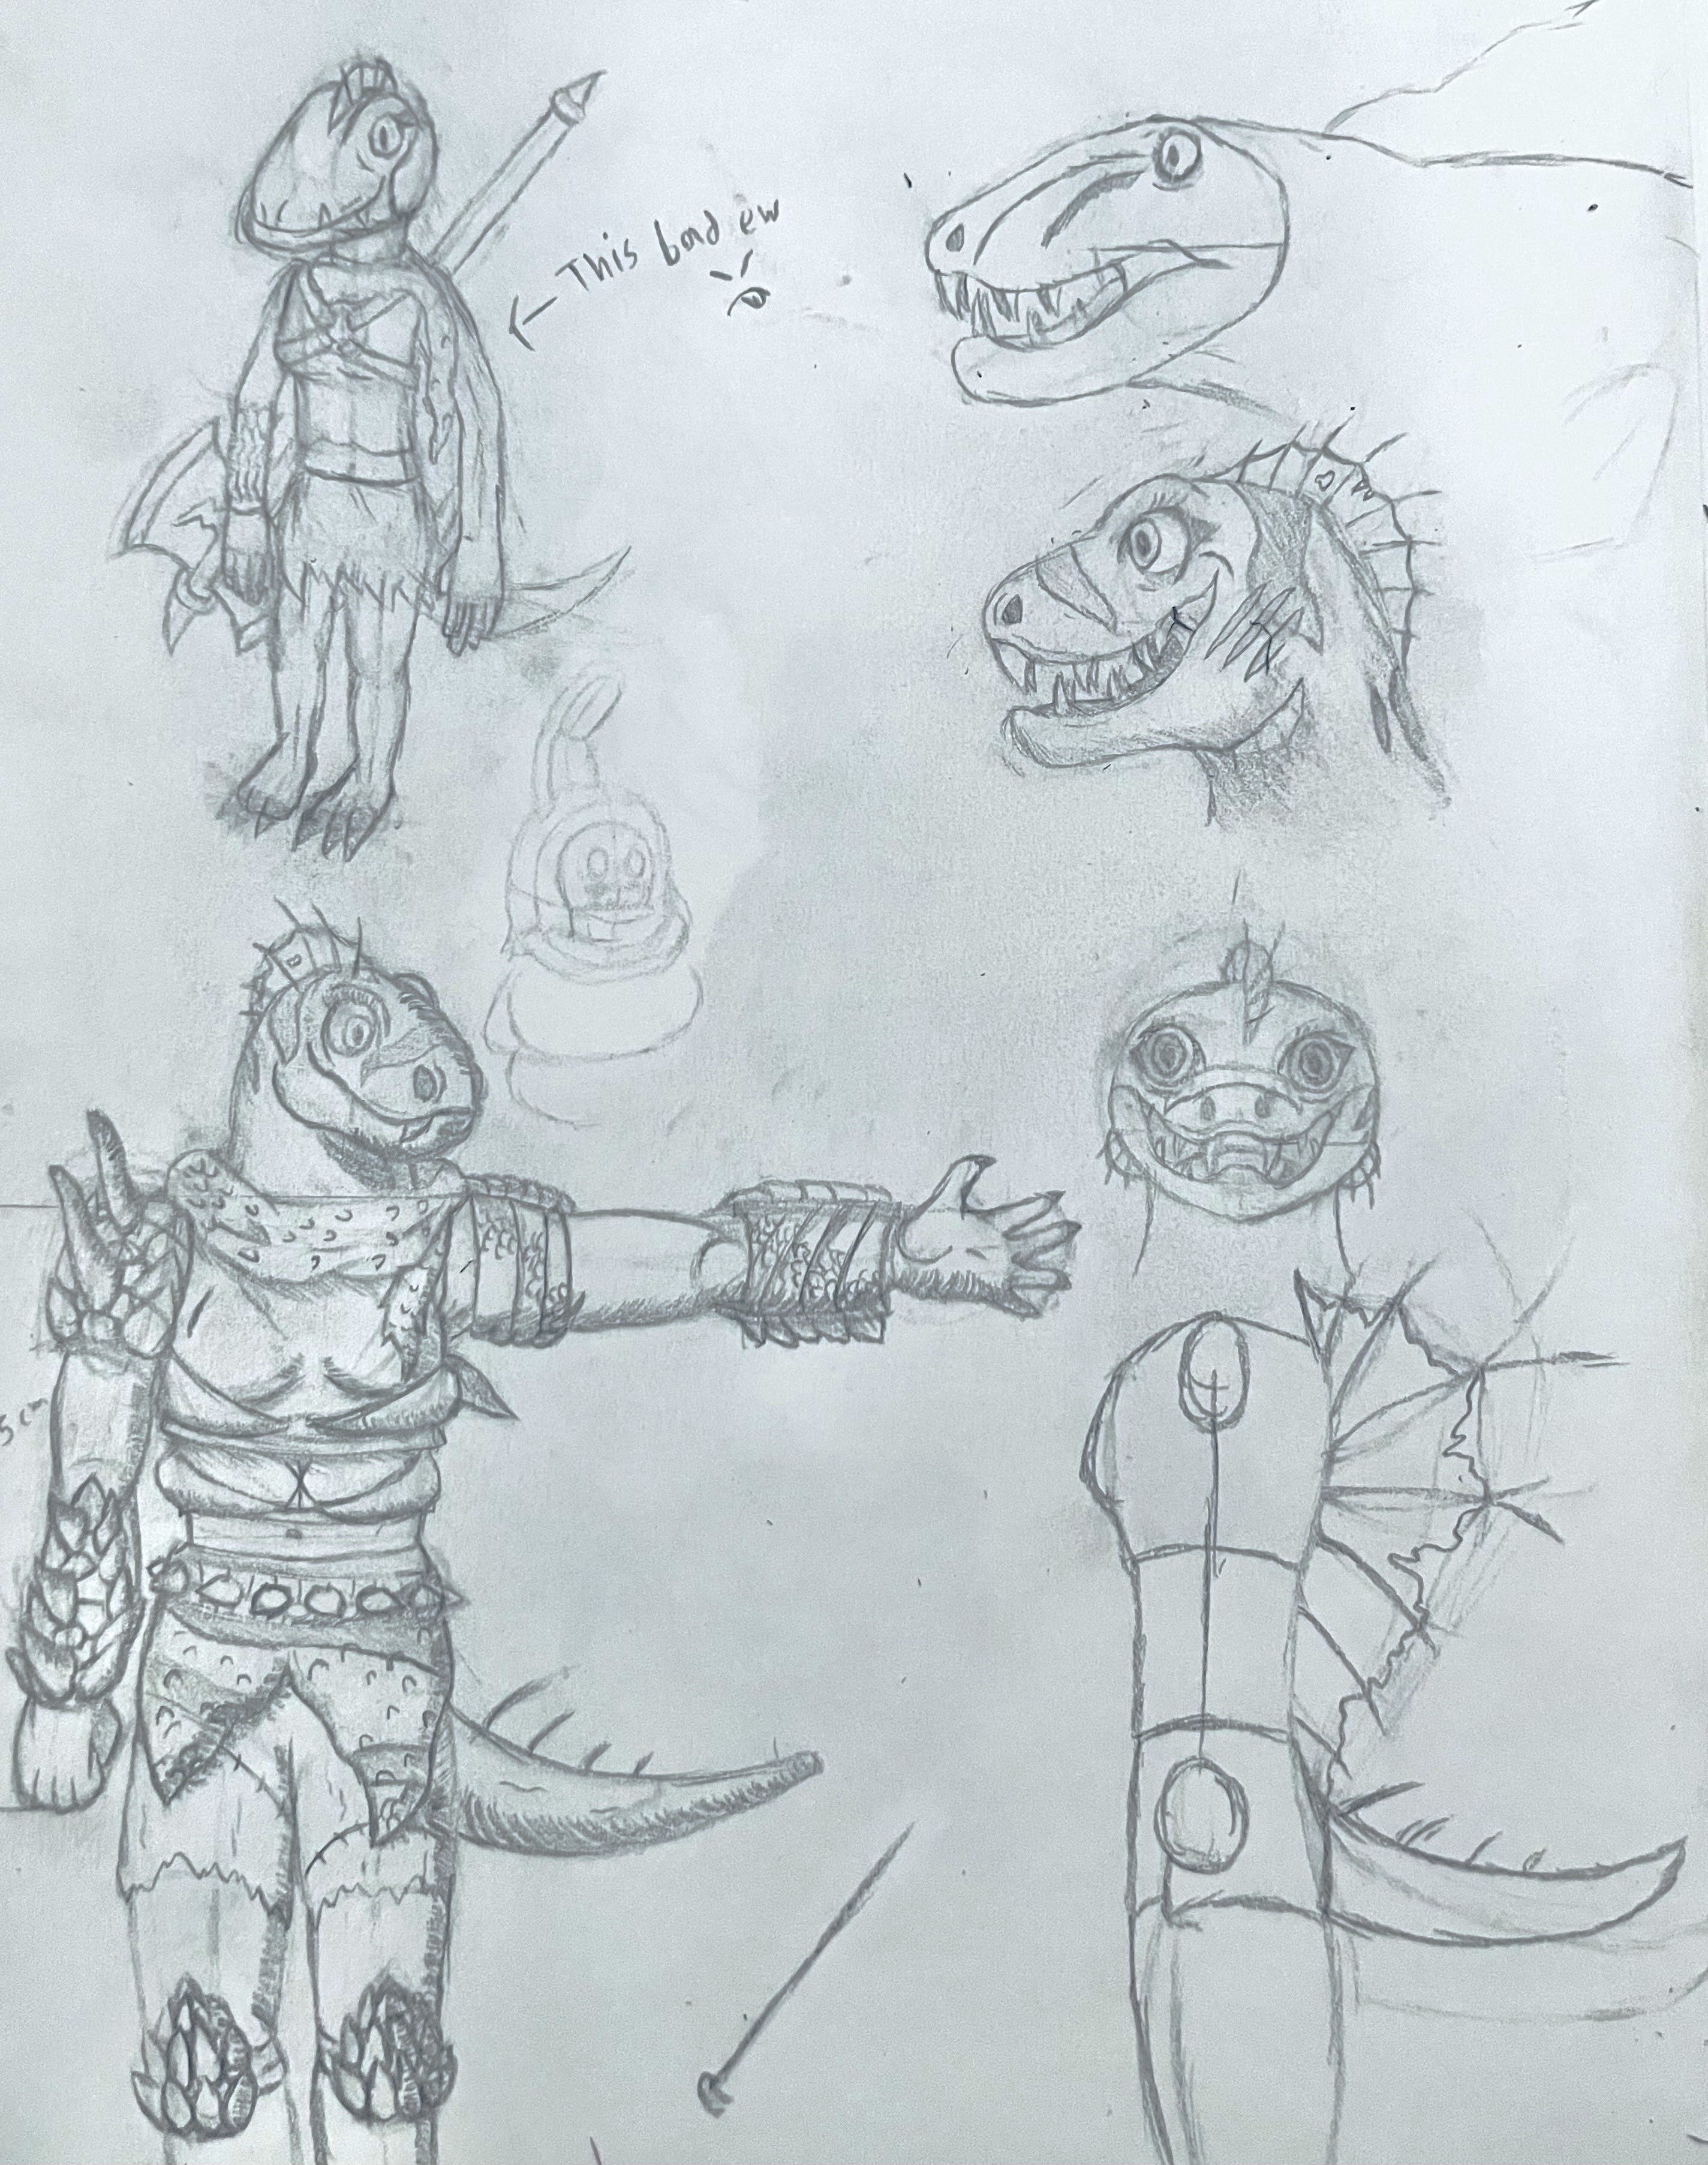 This bad ew
5 cm